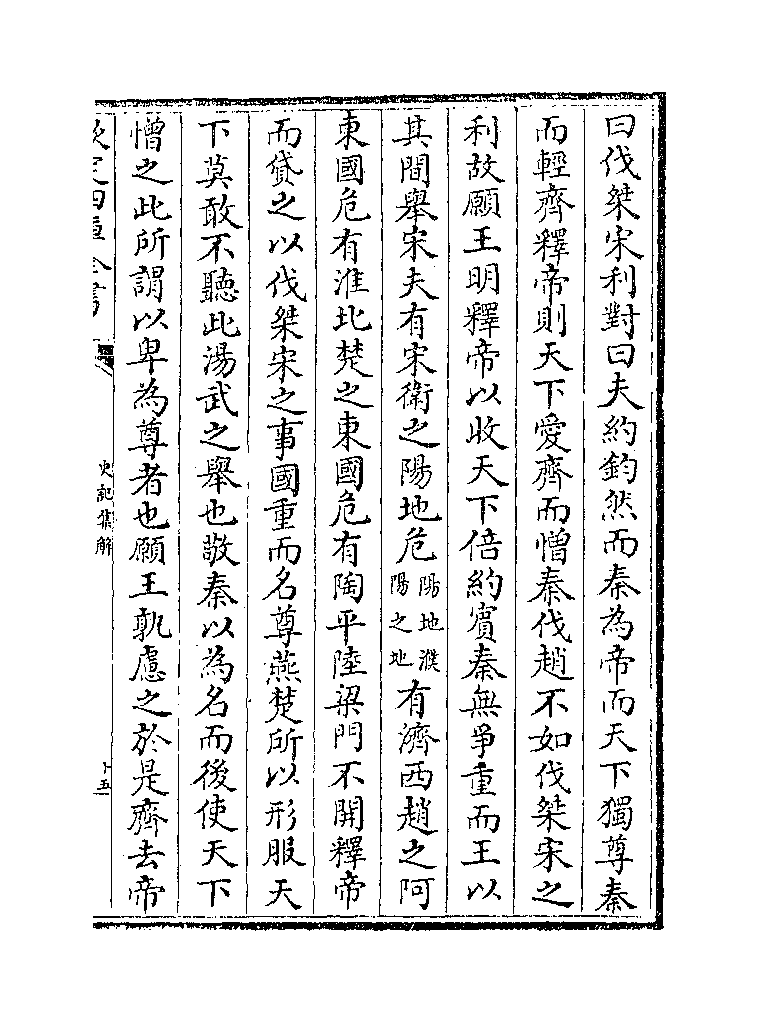 曰伐桀宋利對曰夫約鈞然而秦為帝而天下獨尊秦
而輕齊釋帝則天下愛齊而憎秦伐趙不如伐桀宋之
利故願王明釋帝以收天下倍約賓秦無爭重而王以
其間舉宋夫有宋衛之陽地危陽地濮陽之地有濟西趙之阿
東國危有淮北楚之東國危有陶平陸梁門不開釋帝
而貸之以伐桀宋之事國重而名尊燕楚所以形服天
下莫敢不聽此湯武之舉也敬秦以為名而後使天下
憎之此所謂以卑為尊者也願王孰慮之於是齊去帝
欽定四庫全書
史記集解
十五